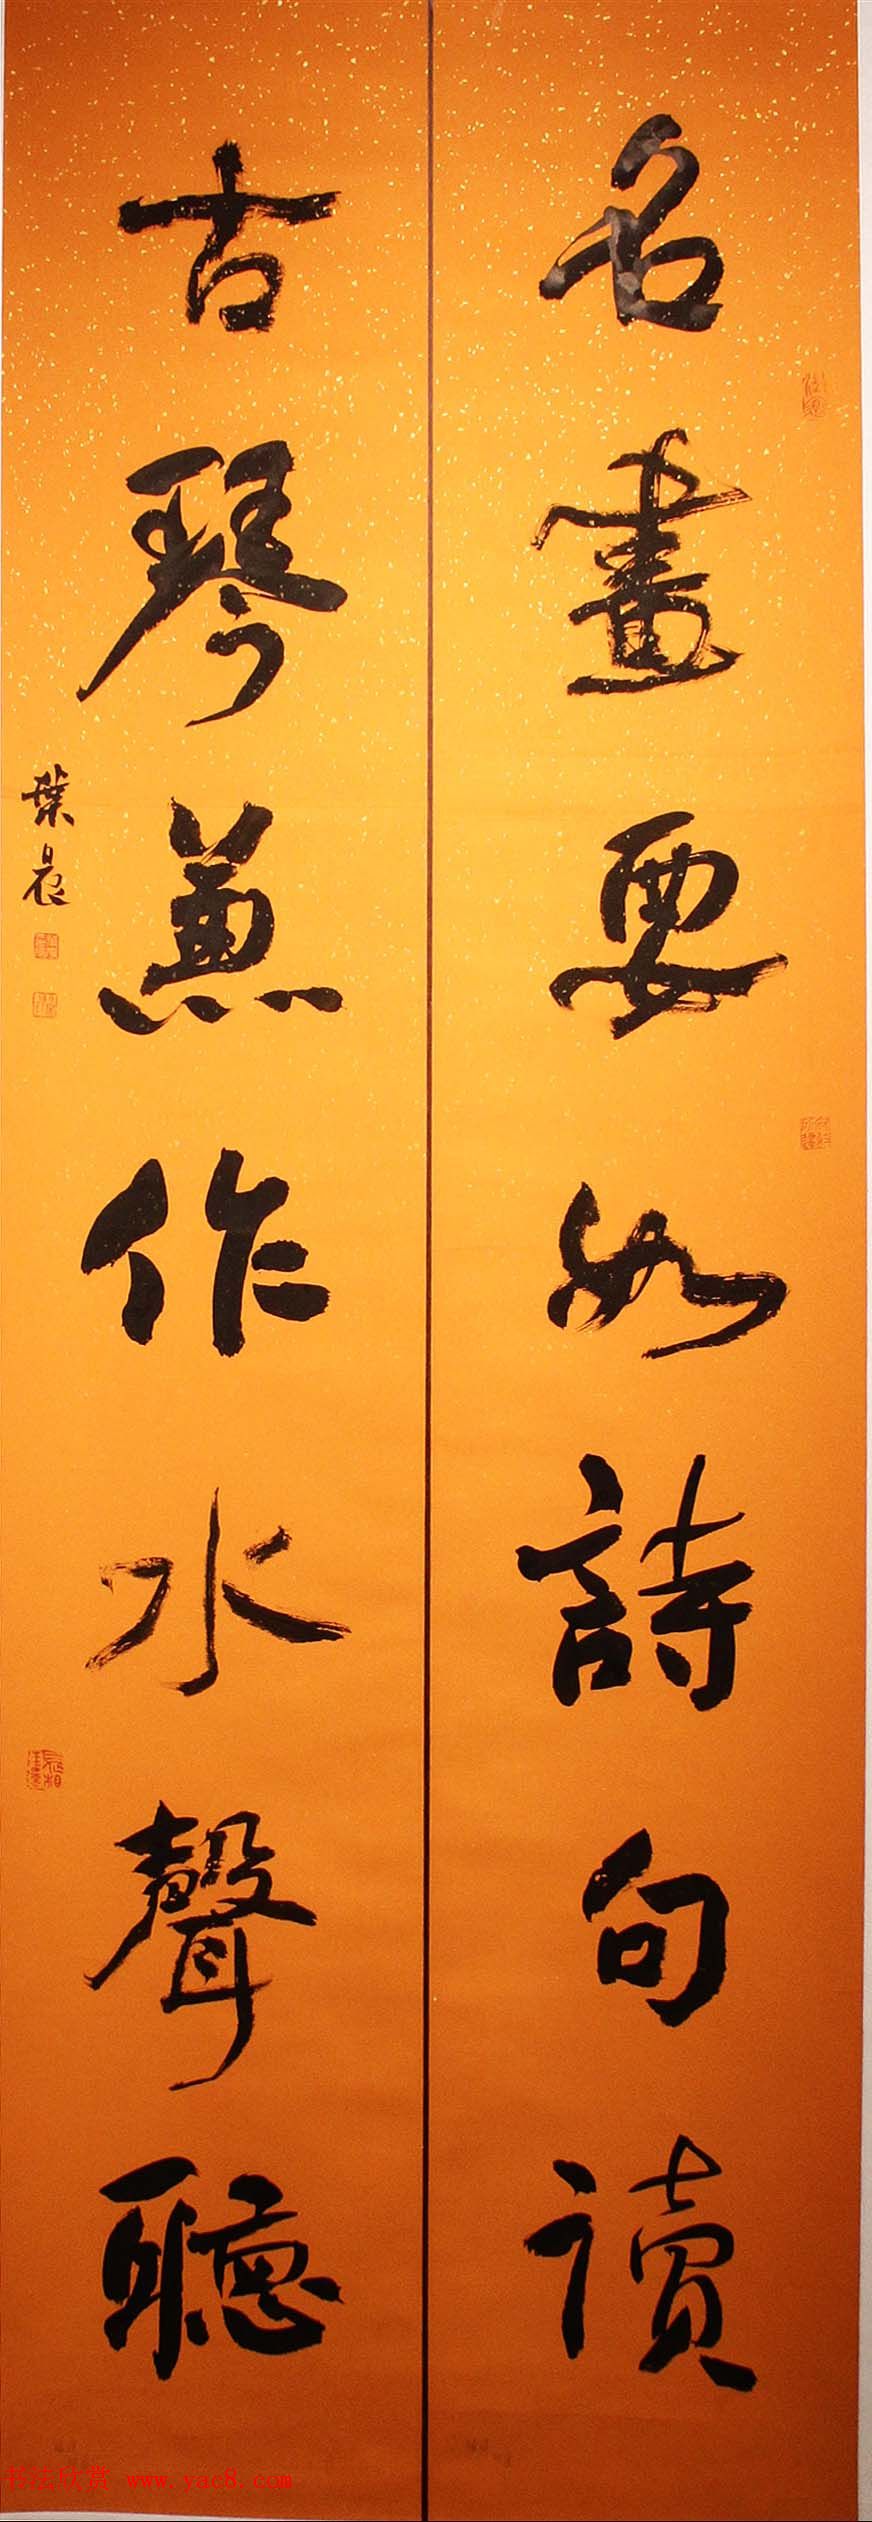 名畫要如詩句讀
古琴兼作水聲聽
葉晨
书法欣赏 www.yac8.com